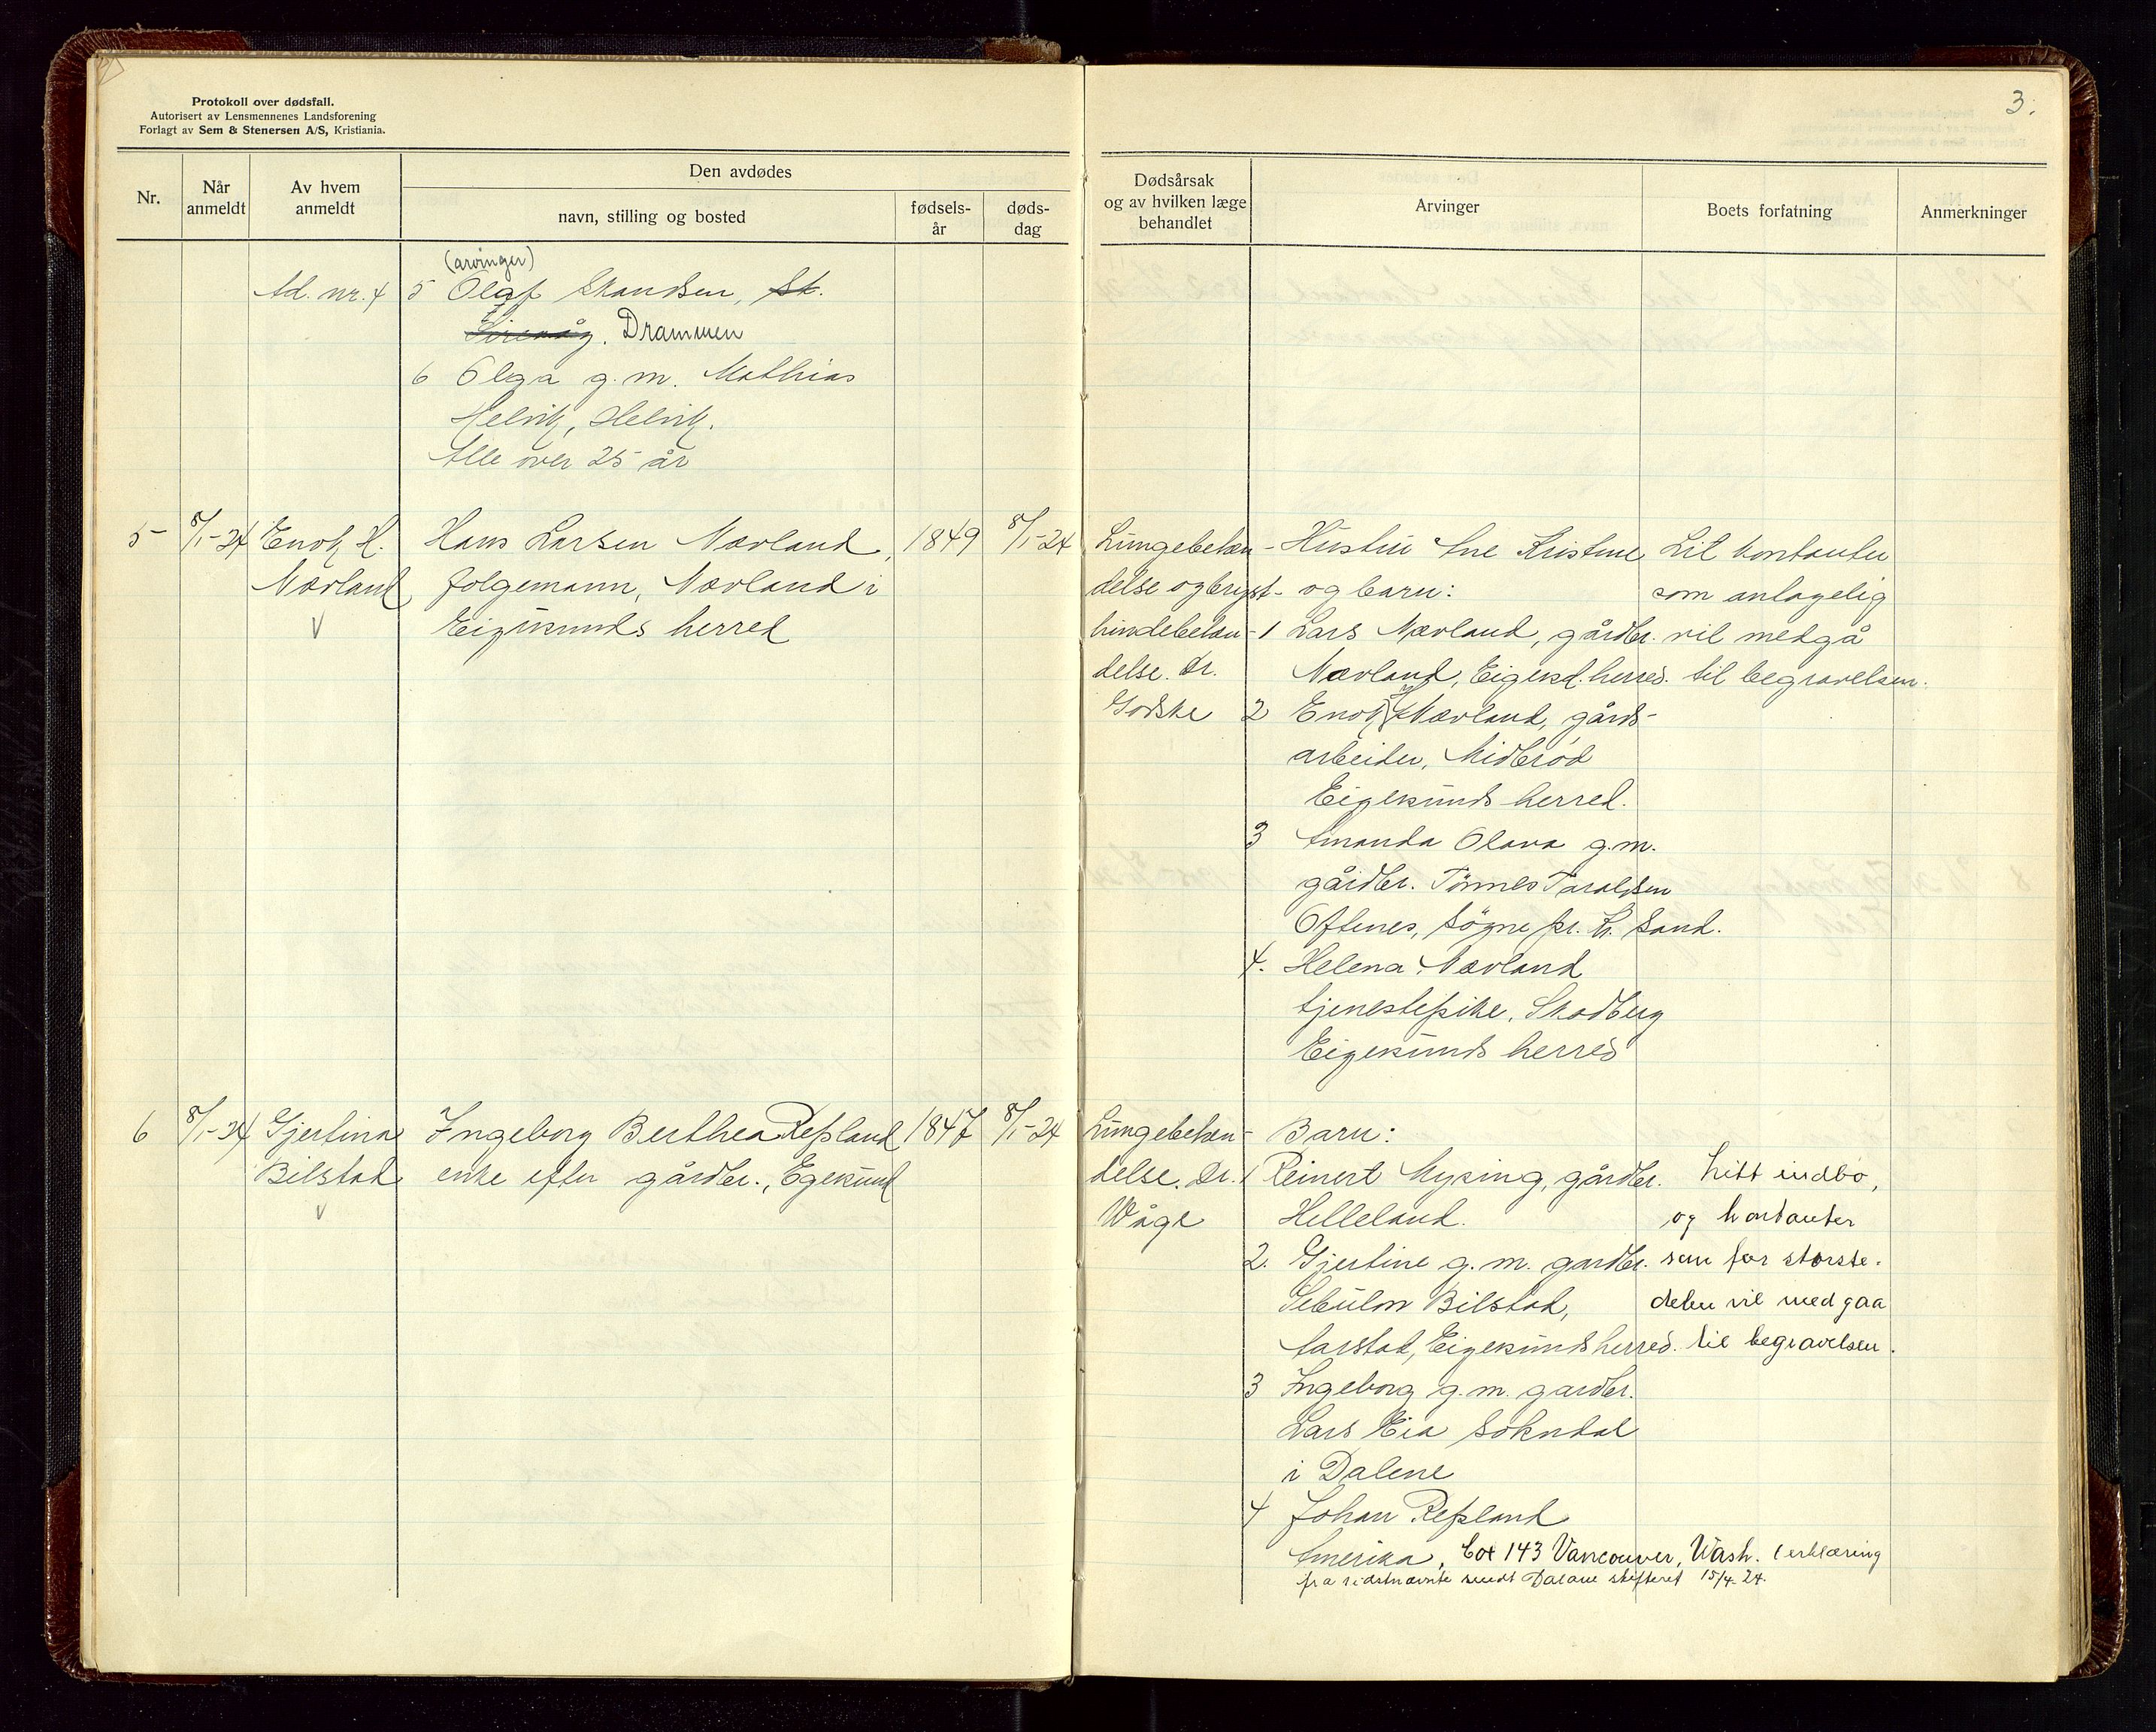 Protokoll over dødsfall.
Autorisert av Lensmennenes Landsforening
Forlagt av Sem & Stenersen A/S, Kristiania.
3.
Nr.
Når anmeldt
Av hvem anmeldt
Den avdødes
navn, stilling og bosted
fødsels-år
døds-dag
Dødsårsak og av hvilken læge behandlet
Arvinger
Boets forfatning
Anmerkninger
(arvinger)
Ad. nr. 4
5 Olaf Skandsen, St.
Sirevåg. Drammen
6 Olga g. m. Mathias
Helvik, Helvik.
Alle over 25 år
5
8/1-24
Enok H.
Nævland
V
Hans Larsen Nævland,
folgemann, Nævland i
Eigersunds herred
1849
8/1-24
Lungebeten-
delse og bryst-
hindebeten-
delse. Dr.
Godske
Hustru Ane Kristine
og barn:
1 Lars Nævland, gårdbr.
Nævland, Eigersd. herred.
2 Enok H Nævland, gårds-
arbeider, Midbrød
Eigersunds herred.
3 Amanda Olava g.m.
gårdbr. Tønnes Taraldsen
Oftenes, Søgne pr. Kr. Sand.
4. Helena Nævland
tjenestepike, Skadberg
Eigersunds herred
Lit kontanter
som antagelig
vil medgå
til begravelsen.
6
8/1-24
Gjertina
Bilstad
V
Ingeborg Berthea Refsland
enke efter gårdbr., Egersund
1847
8/1-24
Lungebeten-
delse. Dr.
Wåge
Barn:
1 Reinert Mysing, gårdbr.
Helleland.
2. Gjertine g. m. gardbr.
Sebulon Bilstad,
Aarstad, Eigersunds herred.
3 Ingeborg g. m. gardbr.
Lars Eia Sokndal
i Dalene
4 Johan Refsland
Amerika, Box 143 Vancouver, Wash. (erklæring
fra sidstnævnte sendt Dalane skifteret 15/4-24.
Litt indbo,
og kontanter
som for største-
delen vil medgaa
til begravelsen.